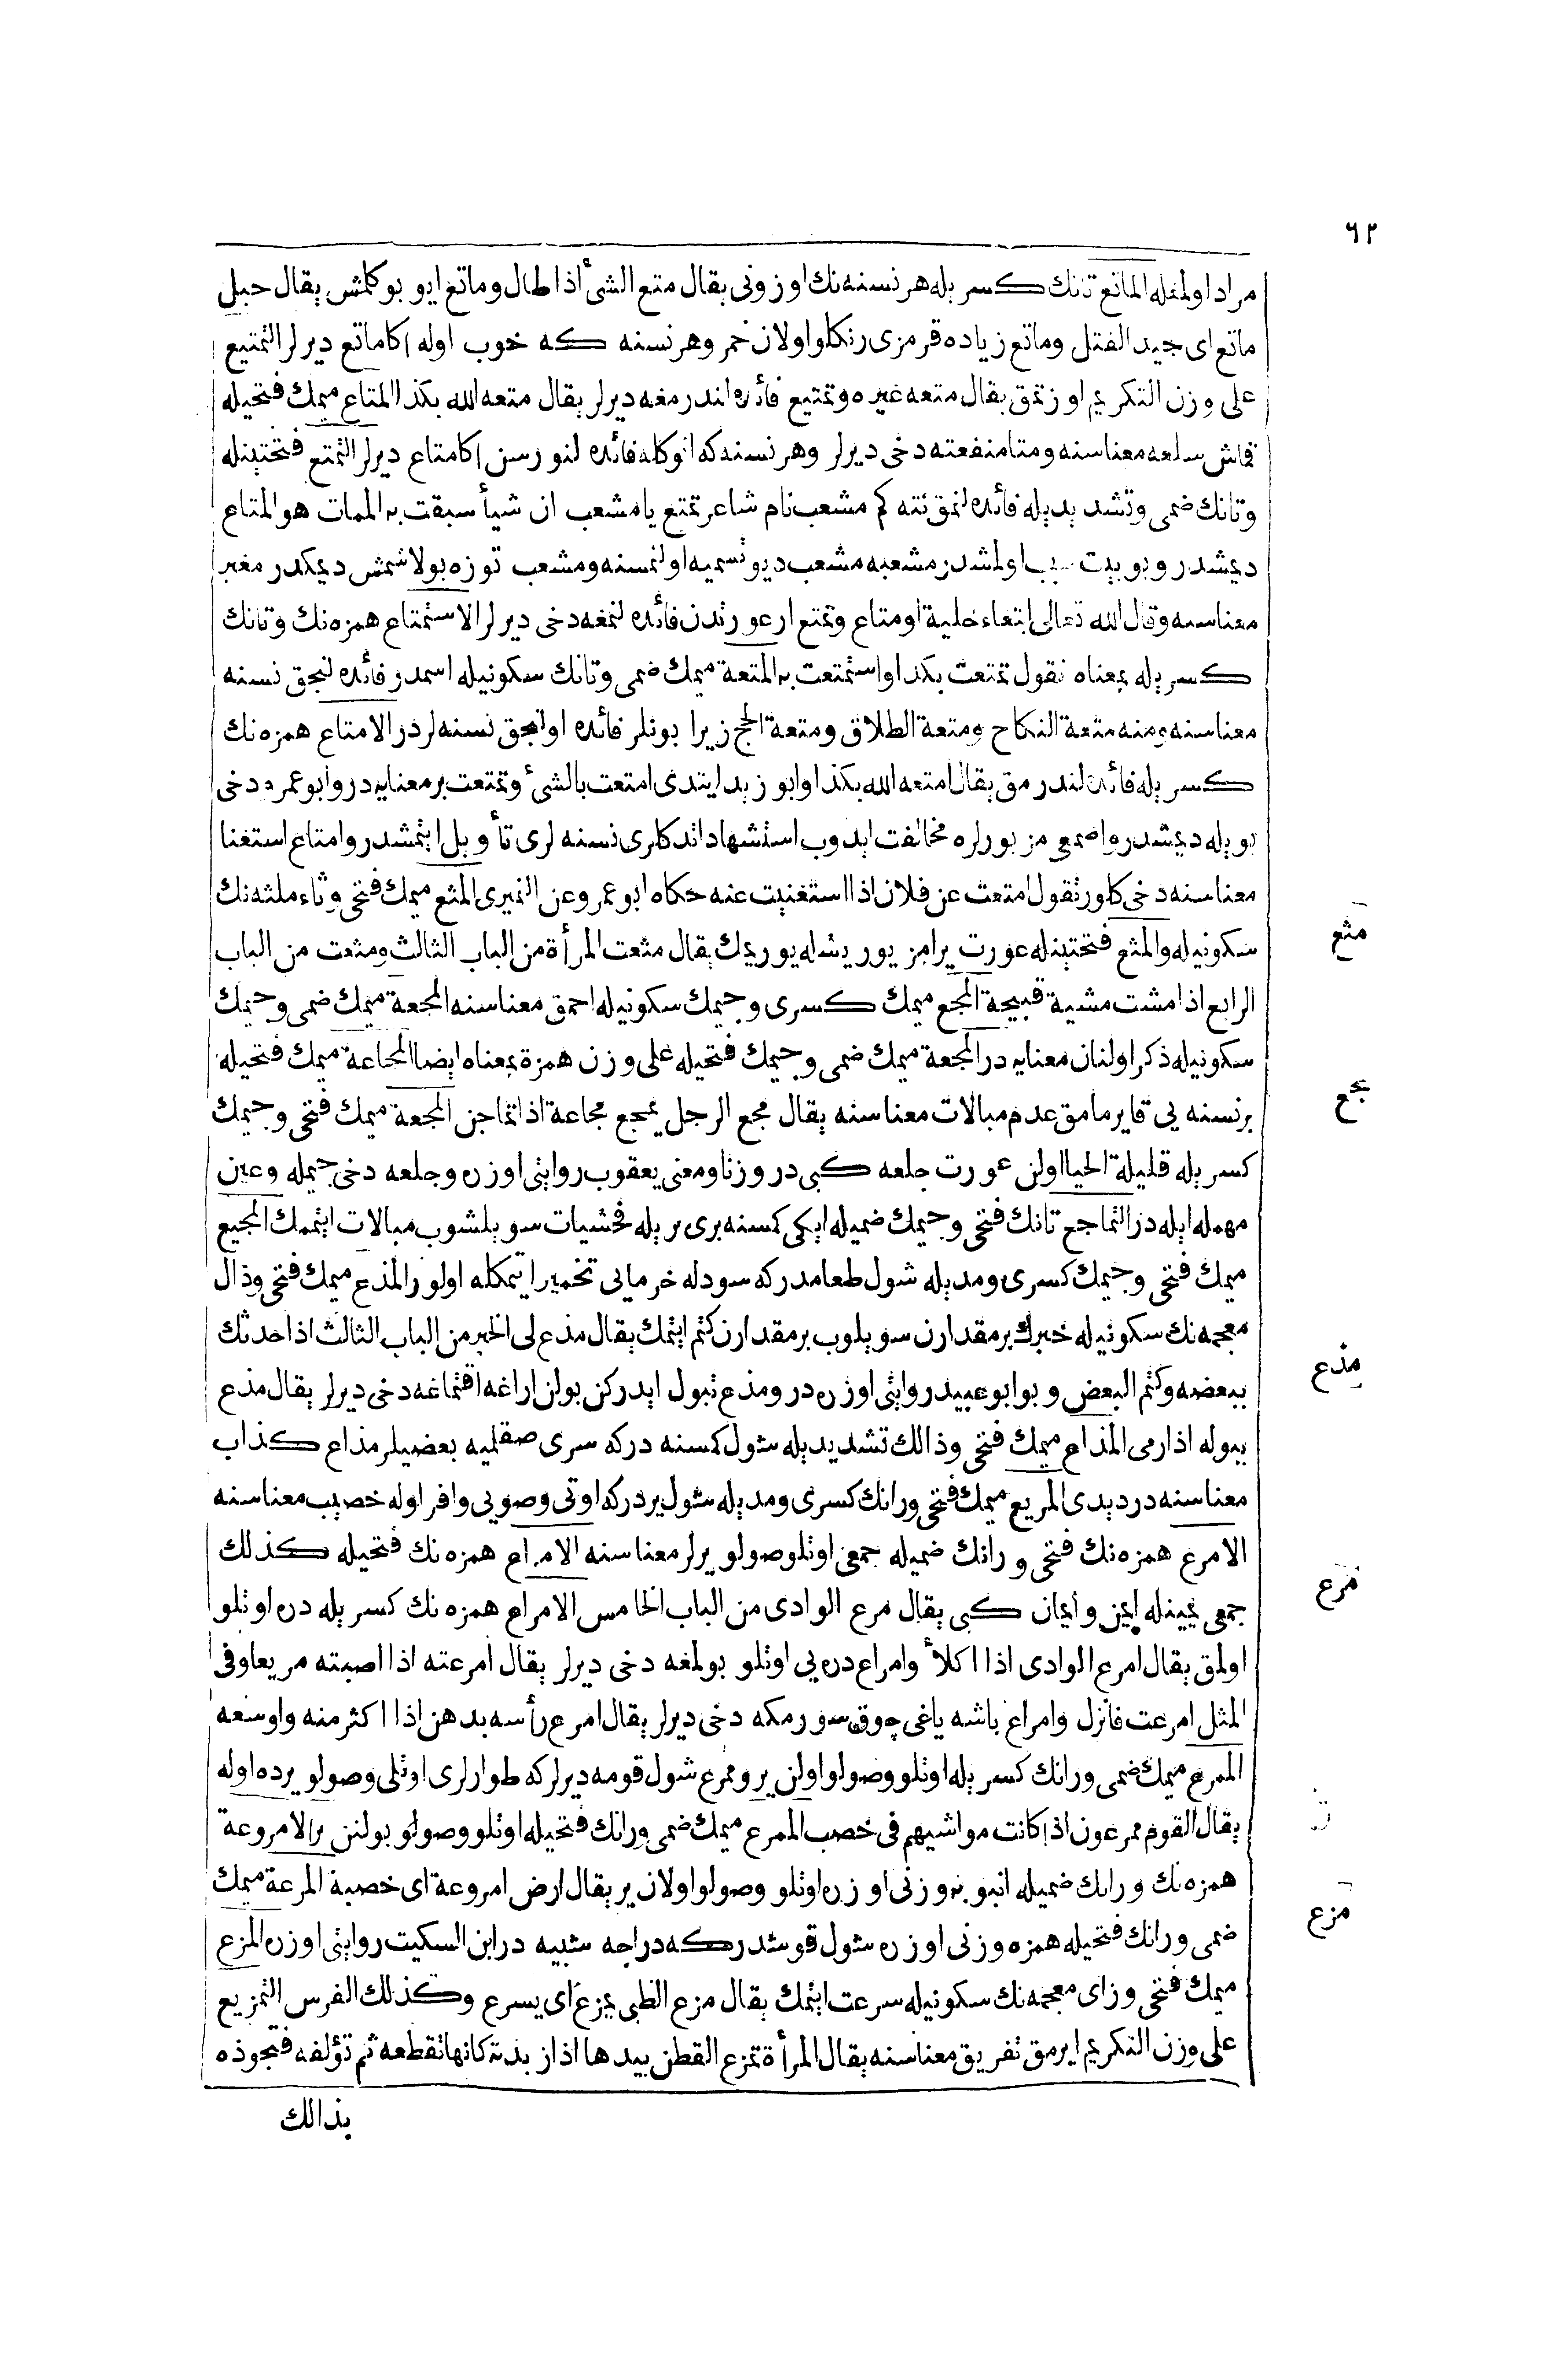 ٦٢
مراد اولمغله الماتع تانك كسريله هر نسنه نك اوزونى يقال متع الشئ اذا طال وماتع ايو بوكلمش يقال حبل
ماتع اى جيد الفتل وماتع زياده قرمزى رنكلو اولان خمر وهر نسنه كه خوب اوله اكا ماتع ديرلر التمتيع
على وزن التكريم اوزتمق يقال متعه غيره وتمتيع فائده لندرمغه ديرلر يقال متعه الله بكذا المتاع ميمك فتحيله
قماش سلعه معناسنه ومتا منفعته دخى ديرلر وهر نسنه كه انوكله فائده لنورسن اكا متاع ديرلر التمتع فتحتينله
وتانك ضمى وتشديديله فائده لنمق نته كم مشعب نام شاعر تمتع يا مشعب ان شيأ سبقت به الممات هو المتاع
ديمشدر وبو بيت سبب اولمشدر مشعبه مشعب ديو تسميه اولنمسنه ومشعب توزه بولاشمش ديمكدر مغبر
معناسنه وقال الله تعالى ابتغاء حلية او متاع وتمتع ارعورتدن فائده لنمغه دخى ديرلر الاستمتاع همزه نك وتانك
كسريله بمعناه تقول تمتعت بكذا واستمتعت به المتعة ميمك ضمى وتانك سكونيله اسمدر فائده لنجق نسنه
معناسنه ومنه متعة النكاح ومتعة الطلاق ومتعة الحج زيرا بونلر فائده اولنجق نسنه لردر الامتاع همزه نك
كسريله فائده لندرمق يقال امتعه الله بكذا وابو زيد ايتدى امتعت بالشئ وتمتعت بر معنايه در وابو عمرو دخى
بويله ديمشدر واصمعى مزبورلره مخالفت ايدوب استشهاد اتدكلرى نسنه لرى تأويل ايتمشدر وامتاع استغنا
معناسنه دخى كلور تقول امتعت عن فلان اذا استغنيت عنه حكاه ابو عمرو عن النميرى المثع ميمك فتحى وثاء مثلثه نك
سكونيله والمثع فتحتينله عورت يرامز يوريشله يوريمك يقال مثعت المرأة من الباب الثالث ومثعت من الباب
الرابع اذا مشت مشية قبيحة المجع ميمك كسرى وجيمك سكونيله احمق معناسنه المجعة ميمك ضمى وجيمك
سكونيله ذكر اولنان معنايه در المجعة ميمك ضمى وجيمك فتحيله على وزن همزة بمعناه ايضا المجاعة ميمك فتحيله
برنسنه يى قايرمامق عدم مبالات معناسنه يقال مجع الرجل يمجع مجاعة اذا تماجن المجعة ميمك فتحى وجيمك
كسريله قليلة الحيا اولن عورت جلعه كبى در وزنا ومعنى يعقوب روايتى اوزره وجلعه دخى جيمله وعين
مهمله ايله در التماجع تانك فتحى وجيمك ضميله ايكى كمسنه برى بريله فحشيات سويلشوب مبالات ايتممك المجيع
ميمك فتحى وجيمك كسرى ومديله شول طعامدر كه سودله خرمايى تخمير ايتمكله اولور المذع ميمك فتحى وذال
معجمه نك سكونيله خبرك بر مقدارن سويلوب بر مقدارن كتم ايتمك يقال مذع لى الخبر من الباب الثالث اذا حدثك
ببعضه وكتم البعض وبو ابو عبيد روايتى اوزره در ومذع تبول ايدركن بولن اراغه اقتماغه دخى ديرلر يقال مذع
ببوله اذا رمى المذاع ميمك فتحى وذالك تشديديله شول كمسنه در كه سرى صقلميه بعضيلر مذاع كذاب
معناسنه در ديدى المريع ميمك فتحى ورانك كسرى ومديله شول يردر كه اوتى وصويى وافر اوله خصيب معناسنه
الامرع همزه نك فتحى ورانك ضميله جمعى اوتلو صولو يرلر معناسنه الامراع همزه نك فتحيله كذلك
جمعى يمينله ايمن وايمان كبى يقال مرع الوادى من الباب الخامس الامراع همزه نك كسريله دره اوتلو
اولمق يقال امرع الوادى اذا اكلأ وامراع دره يى اوتلو بولمغه دخى ديرلر يقال امرعته اذا اصبته مريعا وفى
المثل امرعت فانزل وامراع باشه ياغى چوق سورمكه دخى ديرلر يقال امرع رأسه بدهن اذا اكثر منه واوسعه
الممرع ميمك ضمى ورانك كسريله اوتلو وصولو اولن ير وممرع شول قومه ديرلر كه طوارلرى اوتلى وصولو يرده اوله
يقال القوم ممرعون اذا كانت مواشيهم فى خصب الممرع ميمك ضمى ورانك فتحيله اوتلو وصولو بولنن ير الامروعة
همزه نك ورانك ضميله انبوبه وزنى اوزره اوتلو وصولو اولان ير يقال ارض امروعة اى خصبة المرعة ميمك
ضمى ورانك فتحيله همزه وزنى اوزره شول قوشدر كه دراجه شبيه در ابن السكيت روايتى اوزره المزع
ميمك فتحى وزاى معجمه نك سكونيله سرعت ايتمك يقال مزع الظبى يمزع اى يسرع وكذلك الفرس التمزيع
على وزن التكريم ايرمق تفريق معناسنه يقال المرأة تمزع القطن بيدها اذا زبدته كانها تقطعه ثم تؤلفه فتجوذه
بذالك
مثع
مجع
مذع
مرع
مزع